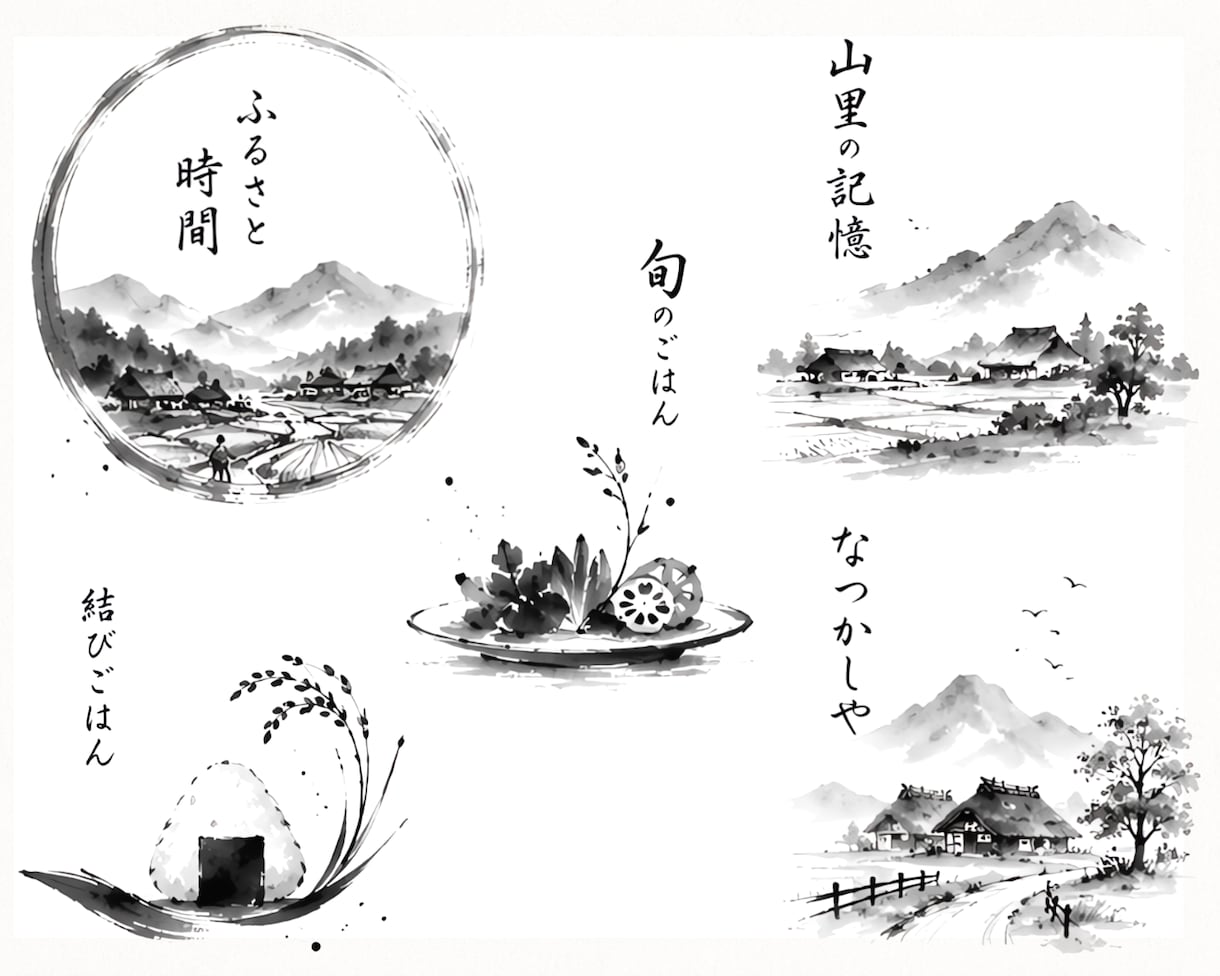 ふるさと
時間
山里の記憶
旬のごはん
なつかしや
結びごはん